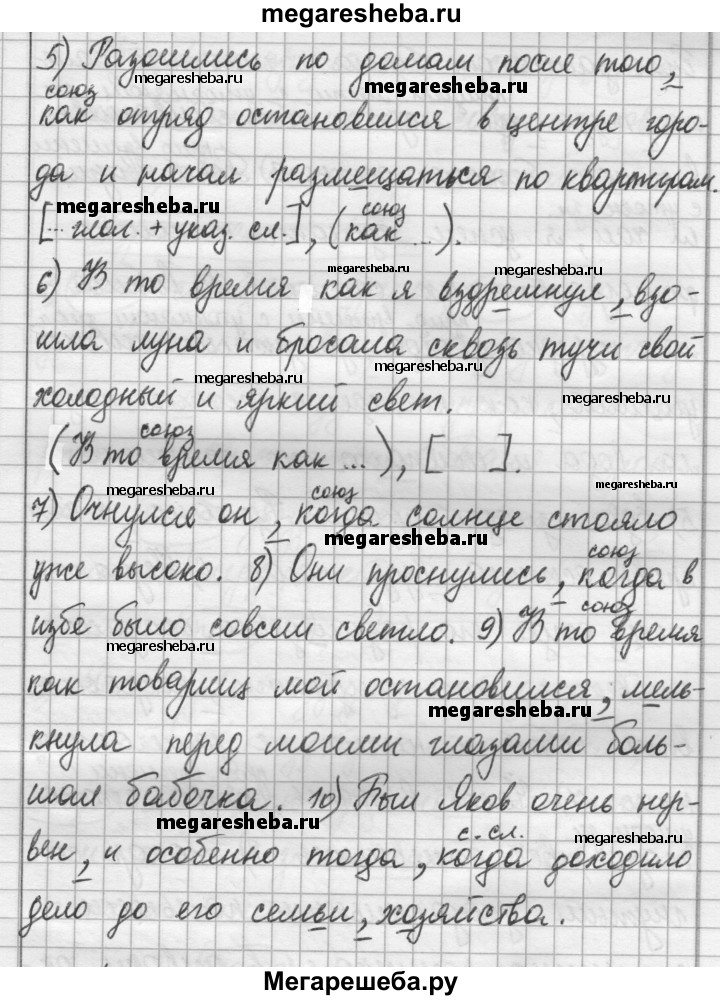 megaresheba.ru
5) Разошлись по домам после того,
megaresheba.ru
megaresheba.ru
союз
как отряд остановился в центре горо-
да и начал размещаться по квартирам.
megaresheba.ru
союз
[... глаг. + указ. сл.], (как ...).
megaresheba.ru
6) В то время как я вздремнул, взо-
megaresheba.ru
шла луна и бросала сквозь тучи свой
megaresheba.ru
megaresheba.ru
холодный и яркий свет.
союз
(В то время как ...), [ ].
megaresheba.ru
megaresheba.ru
союз
7) Очнулся он, когда солнце стояло
megaresheba.ru
союз
уже высоко. 8) Они проснулись, когда в
союз
избе было совсем светло. 9) В то время
megaresheba.ru
как товарищ мой остановился, мель-
megaresheba.ru
кнула перед моими глазами боль-
шая бабочка. 10) Был Яков очень нер-
megaresheba.ru
с. сл.
megaresheba.ru
вен, и особенно тогда, когда доходило
дело до его семьи, хозяйства.
Мегарешеба.ру